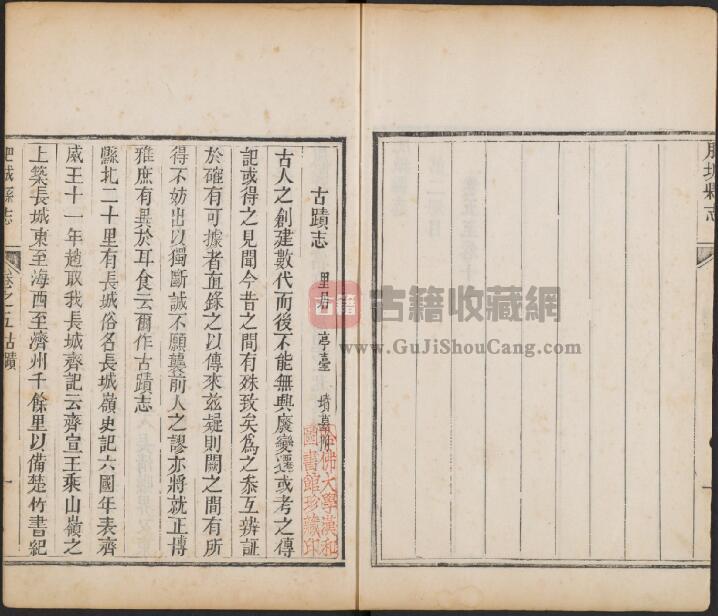 肥城縣志
古蹟志
里居 亭臺 墳墓附
古人之創建數代而後不能無興廢變遷或考之傳
記或得之見聞今昔之間有殊致矣爲之叅互辨証
於確有可據者直錄之以傳來玆疑則闕之間有所
得不妨出以獨斷誠不願襲前人之謬亦將就正博
雅庶有異於耳食云爾作古蹟志
縣北二十里有長城俗名長城嶺史記六國年表齊
威王十一年趙取我長城齊記云齊宣王乘山嶺之
上築長城東至海西至濟州千餘里以備楚竹書紀
肥城縣志
卷之五古蹟
一
哈佛大學漢和
圖書館珍藏印
古籍
古籍收藏網
www.GuJiShouCang.com